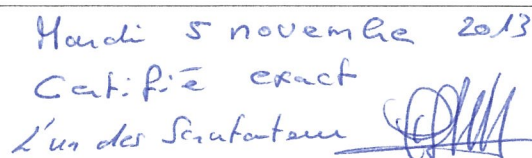 Mardi 5 novembre 2013
Certifié exact
L'un des Scrutateurs